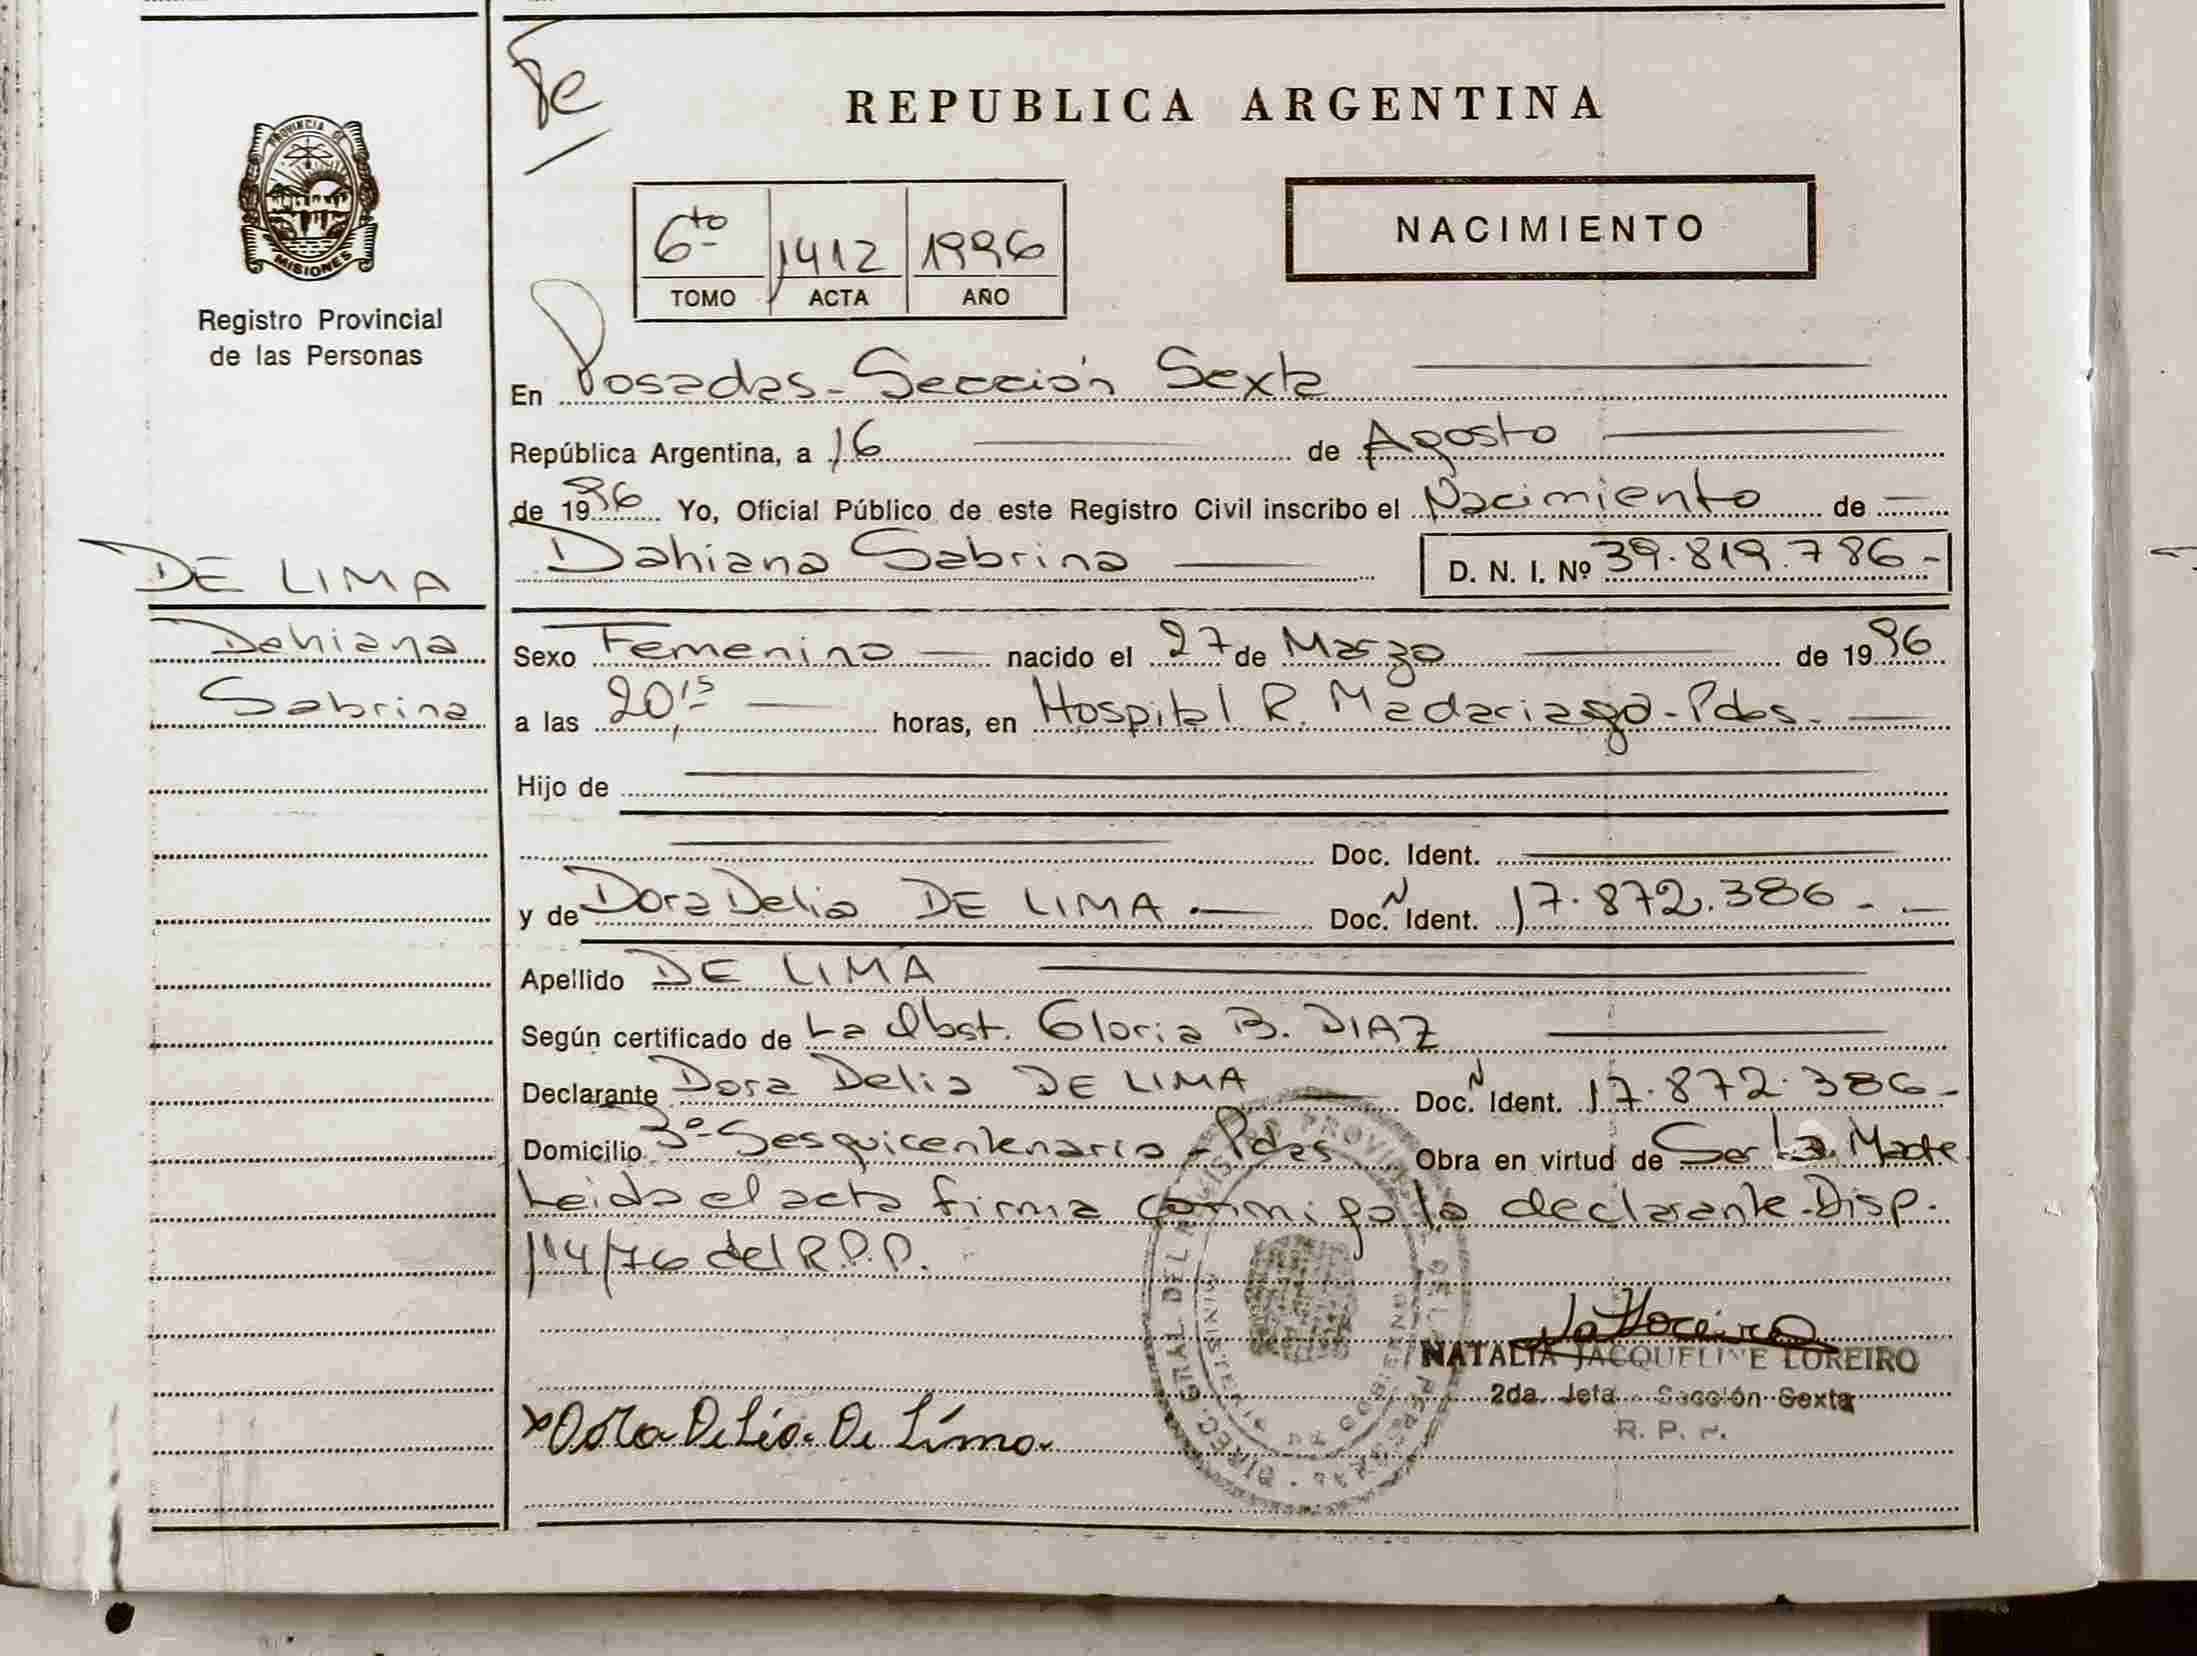 Fe
REPUBLICA ARGENTINA
PROVINCIA DE
MISIONES
Registro Provincial
de las Personas
6to 1412 1996
TOMO ACTA AÑO
NACIMIENTO
En Posadas-Sección Sexta
República Argentina, a 16 de Agosto
de 1996 Yo, Oficial Público de este Registro Civil inscribo el Nacimiento de
Dahiana Sabrina D. N. I. Nº 39.819.786-
DE LIMA
Dahiana
Sabrina
Sexo Femenino nacido el 27 de Marzo de 1996
a las 20,15 horas, en Hospital R. Madariaga-Pdas.
Hijo de
Doc. Ident.
y de Dora Delia DE LIMA.- Doc. N Ident. 17.872.386.-
Apellido DE LIMA
Según certificado de La Obst. Gloria B. DIAZ
Declarante Dora Delia DE LIMA Doc. N Ident. 17.872.386-
Domicilio 3º-Sesquicentenario-Pdas Obra en virtud de Ser la Madre
Leida el acta firma conmigo la declarante-Disp.
114/76 del R.P.P.
NATALIA JACQUELINE LOREIRO
2da. Jefa Sección Sexta
R. P. P.
x Dora Delia De Lima